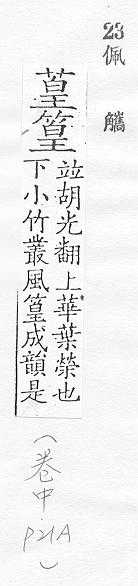 23
佩觿
葟篁
竝胡光翻上華葉榮也
下小竹叢風篁成韻是
（卷中
P21A
）